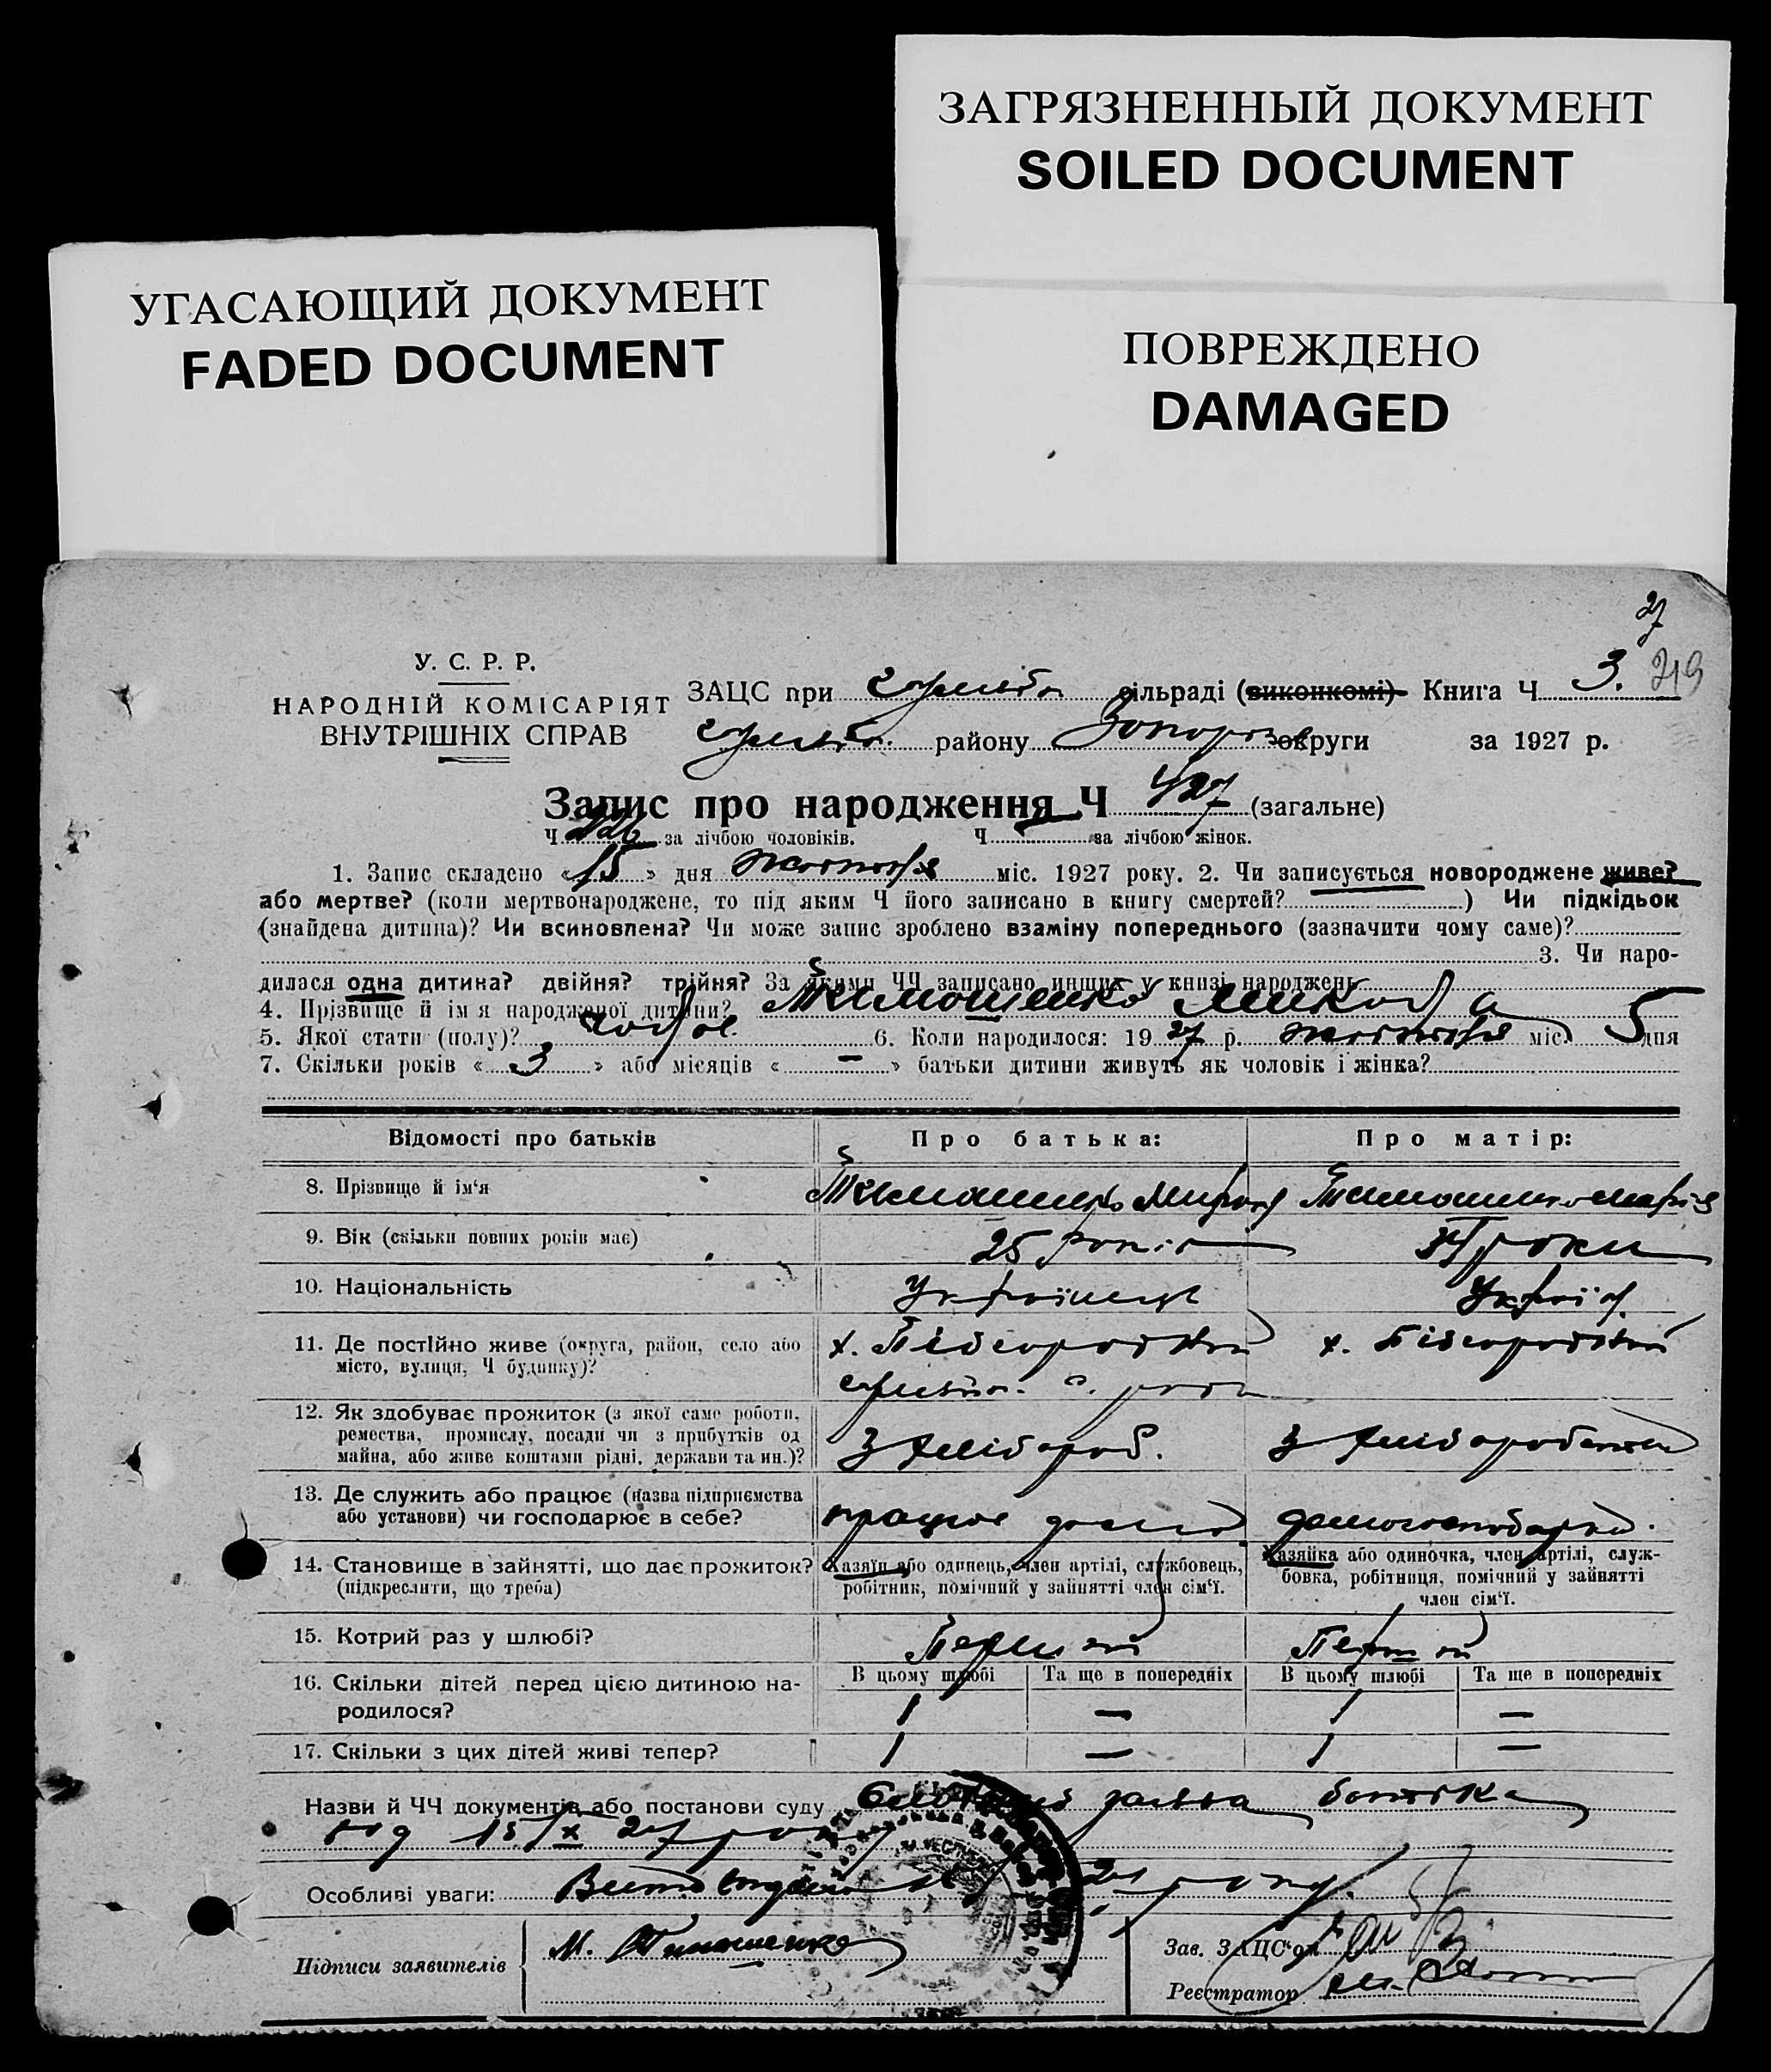 ЗАГРЯЗНЕННЫЙ ДОКУМЕНТ
SOILED DOCUMENT
УГАСАЮЩИЙ ДОКУМЕНТ
FADED DOCUMENT
ПОВРЕЖДЕНО
DAMAGED
27
У. С. Р. Р.
НАРОДНІЙ КОМІСАРІЯТ
ВНУТРІШНІХ СПРАВ
ЗАЦС при сільраді (виконкомі) Книга Ч 3. 219
району Запоріз округи за 1927 р.
Запис про народження Ч 427 (загальне)
Ч 226 за лічбою чоловіків. Ч за лічбою жінок.
1. Запис складено « 15 » дня жовтня міс. 1927 року. 2. Чи записується новороджене живе?
або мертве? (коли мертвонароджене, то під яким Ч його записано в книгу смертей? ) Чи підкідьок
(знайдена дитина)? Чи всиновлена? Чи може запис зроблено взаміну попереднього (зазначити чому саме)?
3. Чи наро-
дилася одна дитина? двійня? трійня? За якими ЧЧ записано инших у книзі народжень
4. Прізвище й ім'я народженої дитини? Тимошенко Микола
5. Якої стати (полу)? чолов. 6. Коли народилося: 19 27 р. жовтня міс. 5 дня
7. Скільки років « 3 » або місяців « — » батьки дитини живуть як чоловік і жінка?
Відомості про батьків Про батька: Про матір:
8. Прізвище й ім'я Тимошенко Мирон Тимошенко Марія
9. Вік (скільки повних років має) 25 років роки
10. Національність Українець Україн.
11. Де постійно живе (округа, район, село або
місто, вулиця, Ч будинку)? х. Підгородний х. Підгородний
12. Як здобуває прожиток (з якої саме роботи,
ремества, промислу, посади чи з прибутків од
майна, або живе коштами рідні, держави та ин.)? З хлібороб. З хліборобства
13. Де служить або працює (назва підприємства
або установи) чи господарює в себе? працює дома домогосподарка.
14. Становище в зайнятті, що дає прожиток?
(підкреслити, що треба)
Хазяїн або одинець, член артілі, службовець,
робітник, помічний у зайнятті член сім'ї.
Хазяйка або одиночка, член артілі, служ-
бовка, робітниця, помічний у зайнятті
член сім'ї.
15. Котрий раз у шлюбі? Перший Перший
16. Скільки дітей перед цією дитиною на-
родилося?
В цьому шлюбі Та ще в попередніх В цьому шлюбі Та ще в попередніх
1 — 1 —
17. Скільки з цих дітей живі тепер? 1 — 1 —
Назви й ЧЧ документів або постанови суду заява батька
від 15/X 27 року
Особливі уваги:
Підписи заявителів М. Тимошенко
Зав. ЗАЦС'ом
Реєстратор